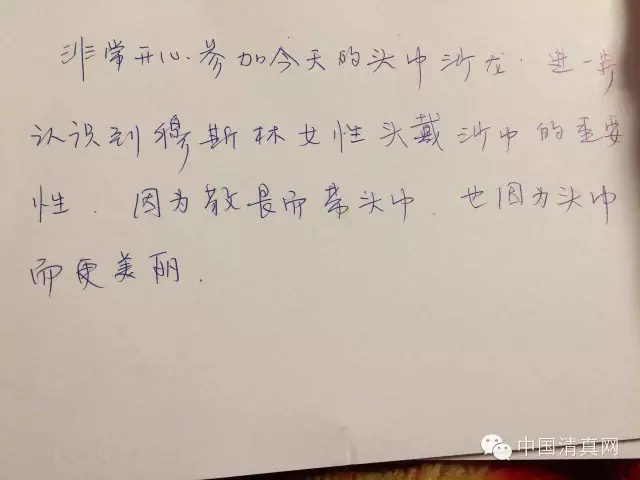 非常开心.参加今天的头巾沙龙.进一步
认识到穆斯林女性头戴沙巾的重要
性.因为教長而带头巾.也因为头巾
而更美丽.
中国清真网